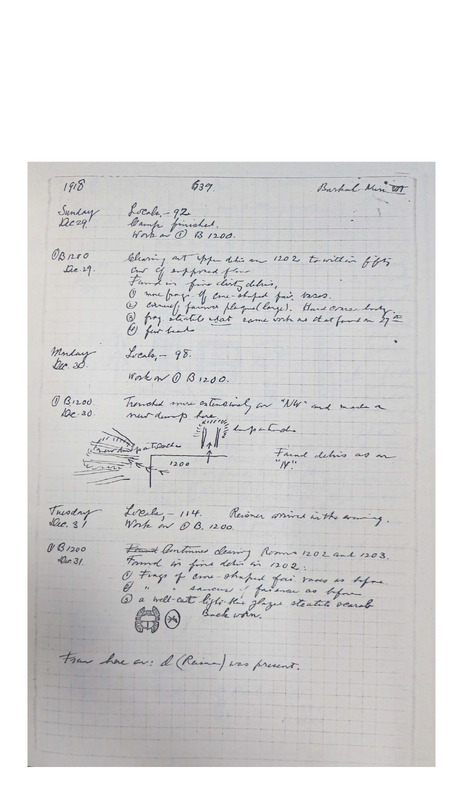 1918 639. Barkal Mer. VII
Sunday Locals, - 92
Dec 29. Camp finished.
Work on ① B 1200.
① B 1200 Clearing out upper debris on 1202 to within fifty
Dec. 29. cm of supposed floor
Found in fine dirty debris,
① more frags. of cone-shaped fai. vases.
② faience plaque (large). Hard coarse body
③ frag steatite same work as that found on 27
④ few beads
Monday Locals, - 98.
Dec. 30.
Work on ① B 1200.
① B 1200. Trenched more extensively on "NW" and made a
Dec. 30. new dump here
1200
Found debris as on
"N"
Tuesday Locals, - 114. Reisner arrived in the evening.
Dec. 31 Work on ① B. 1200.
① B 1200 Found Continued clearing Rooms 1202 and 1203.
Dec 31. Found in fine debris in 1202:
① Frags of cone-shaped fai vases as before
② " " saucers, faience as before
③ a well-cut light-blue glazed steatite scarab
Back worn.
From here on: I (Reisner) was present.